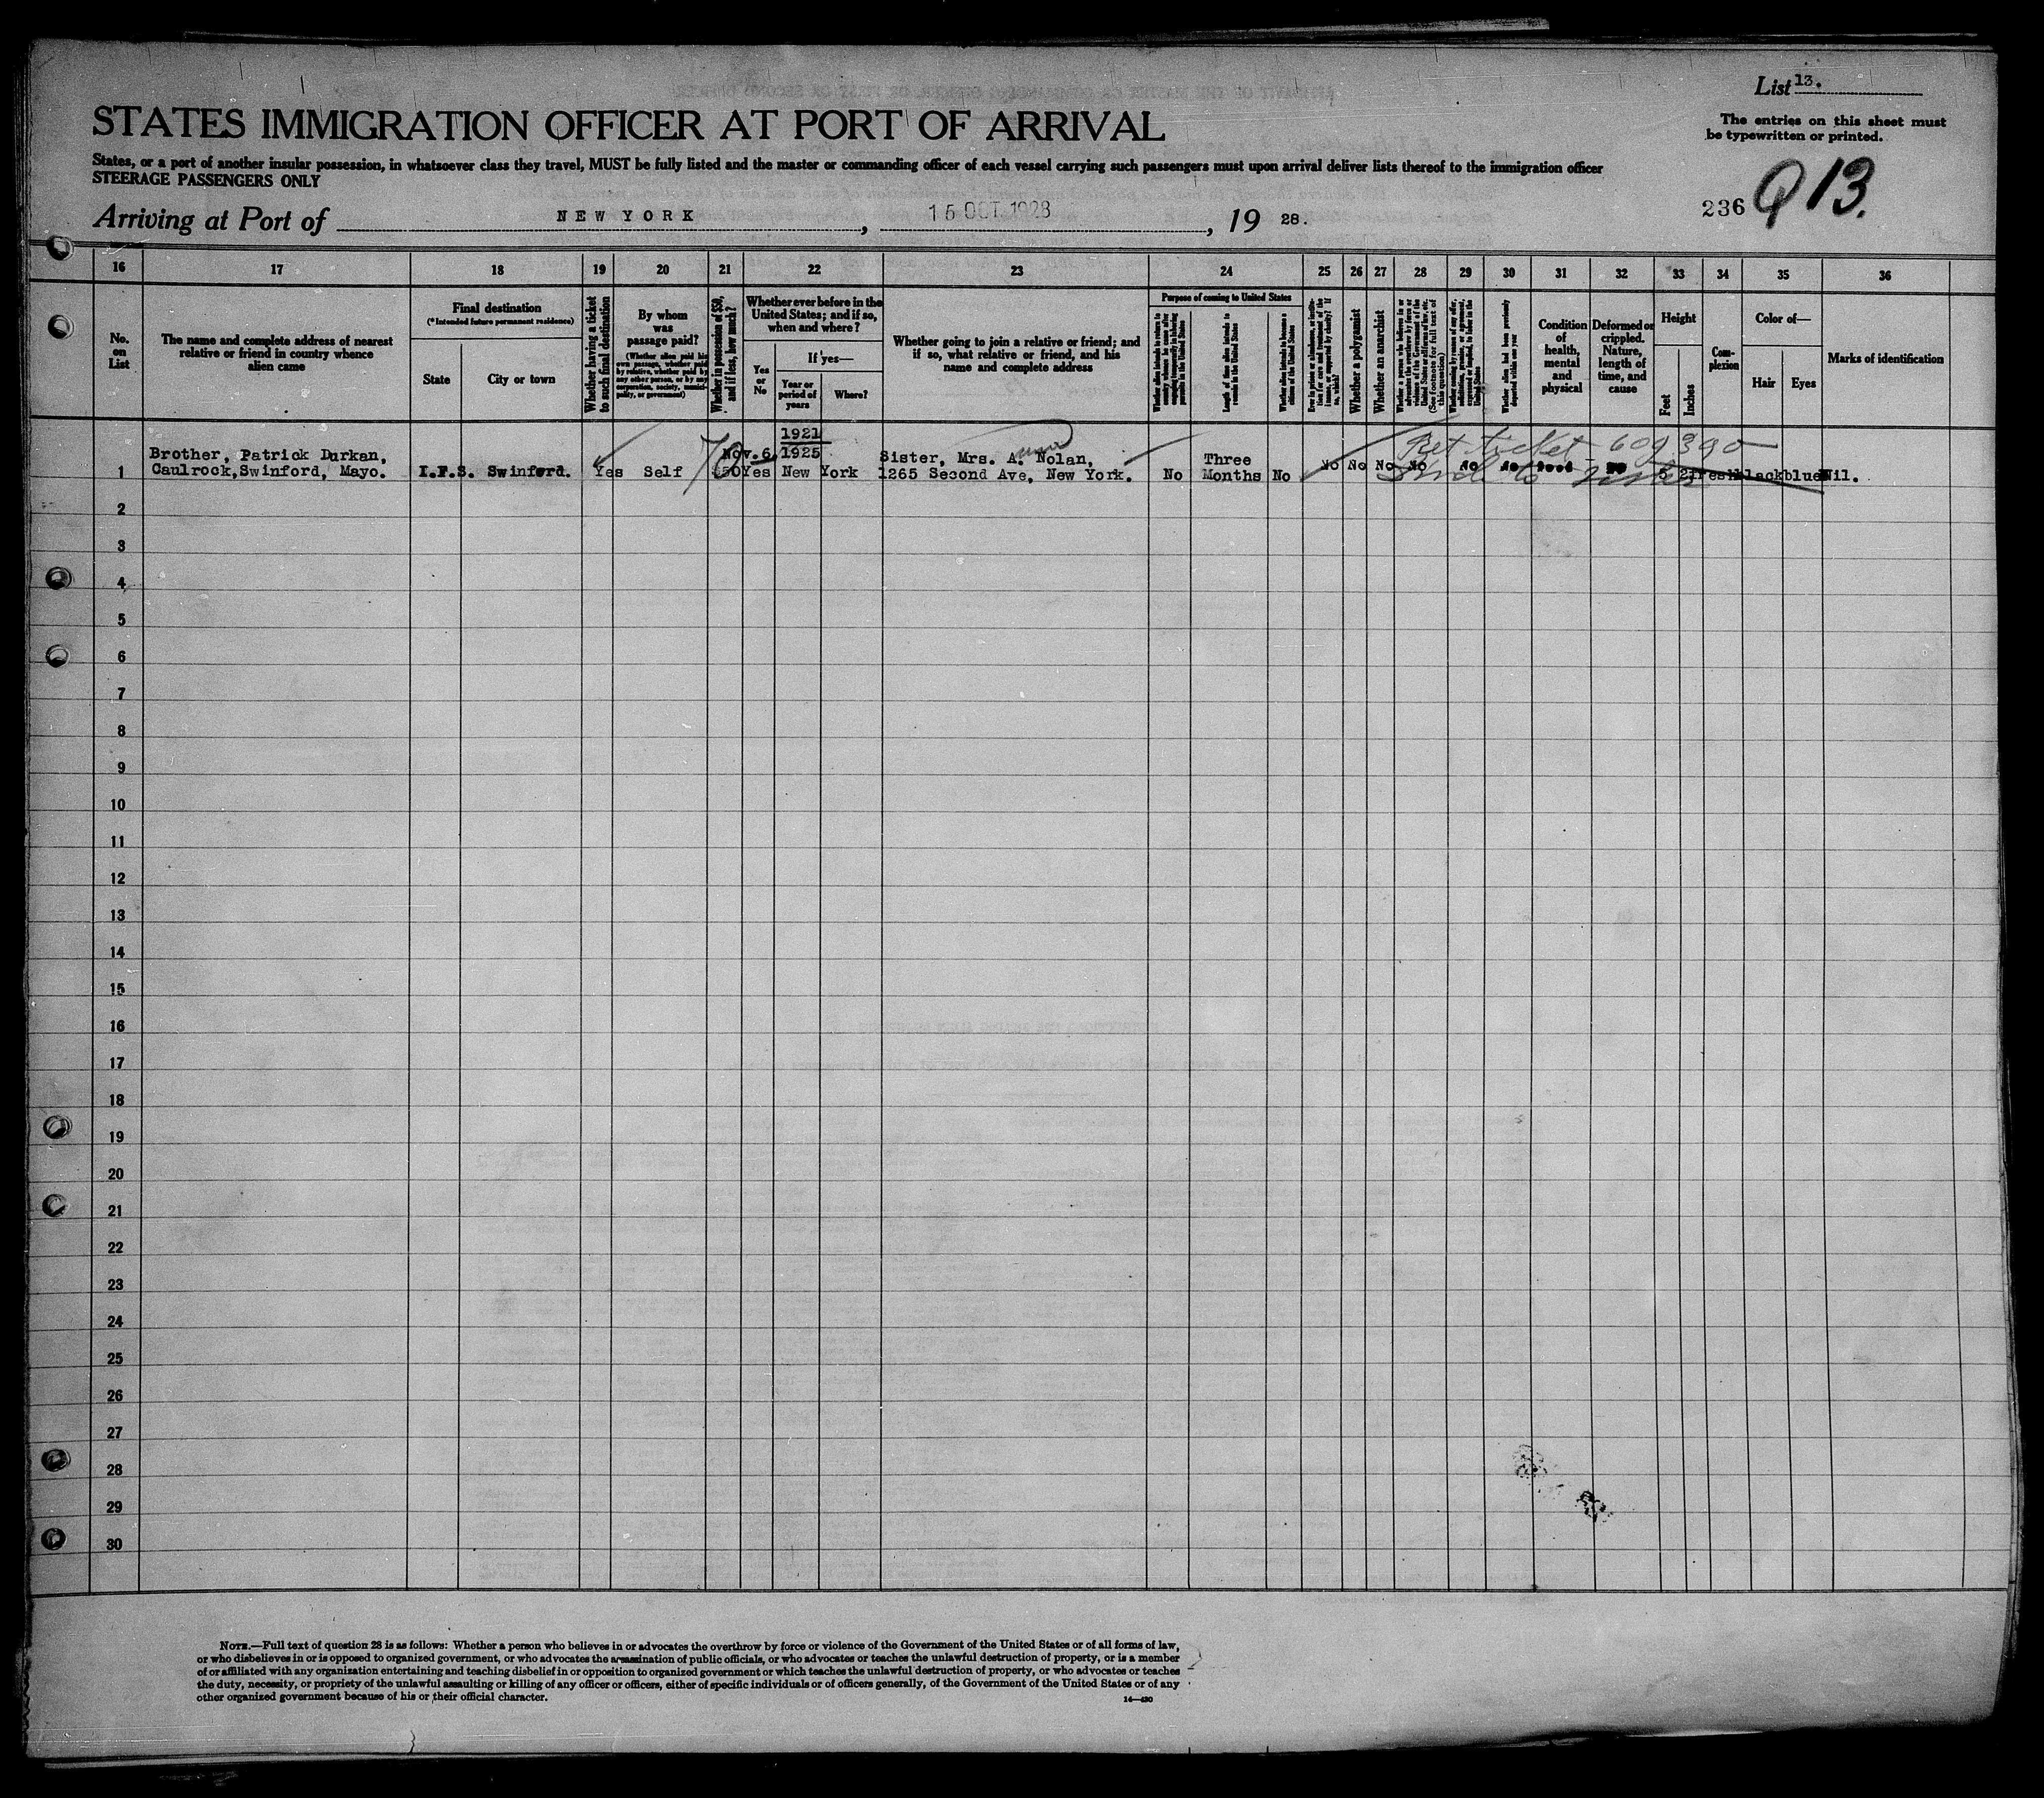 List 13.
STATES IMMIGRATION OFFICER AT PORT OF ARRIVAL
The entries on this sheet must
be typewritten or printed.
States, or a port of another insular possession, in whatsoever class they travel, MUST be fully listed and the master or commanding officer of each vessel carrying such passengers must upon arrival deliver lists thereof to the immigration officer
STEERAGE PASSENGERS ONLY
236 Q 13.
Arriving at Port of NEW YORK, 15 OCT 1928, 19 28.
16 17 18 19 20 21 22 23 24 25 26 27 28 29 30 31 32 33 34 35 36
No.
on
List
The name and complete address of nearest
relative or friend in country whence
alien came
Final destination
(*Intended future permanent residence)
State
City or town
Whether having a ticket
to such final destination
By whom
was
passage paid?
(Whether alien paid his
own passage, whether paid
by relative, whether paid by
any other person, or by any
corporation, society, munici-
pality, or government)
Whether in possession of $50,
and if less, how much?
Whether ever before in the
United States; and if so,
when and where?
Yes
or
No
If yes—
Year or
period of
years
Where?
Whether going to join a relative or friend; and
if so, what relative or friend, and his
name and complete address
Purpose of coming to United States
Whether alien intends to return to
country whence he came after
engaging temporarily in laboring
pursuits in the United States
Length of time alien intends to
remain in the United States
Whether alien intends to become a
citizen of the United States
Ever in prison or almshouse, or institu-
tion for care and treatment of the
insane, or supported by charity? If
so, which?
Whether a polygamist
Whether an anarchist
(See footnote for full text of
this question)
Whether alien had been previously
deported within one year
Condition
of
health,
mental
and
physical
Deformed or
crippled.
Nature,
length of
time, and
cause
Height
Feet
Inches
Com-
plexion
Color of—
Hair
Eyes
Marks of identification
1921
Ret ticket 609390
Brother, Patrick Durkan,
Nov. 6, 1925
Sister, Mrs. A. Nolan,
Three
1 Caulrock, Swinford, Mayo. I.F.S. Swinford. Yes Self 70 $50 Yes New York 1265 Second Ave, New York. No Months No No No No No No No Good No 5 2 fresh black blue Nil.
2
3
4
5
6
7
8
9
10
11
12
13
14
15
16
17
18
19
20
21
22
23
24
25
26
27
28
29
30
NOTE.—Full text of question 28 is as follows: Whether a person who believes in or advocates the overthrow by force or violence of the Government of the United States or of all forms of law,
or who disbelieves in or is opposed to organized government, or who advocates the assassination of public officials, or who advocates or teaches the unlawful destruction of property, or is a member
of or affiliated with any organization entertaining and teaching disbelief in or opposition to organized government or which teaches the unlawful destruction of property, or who advocates or teaches
the duty, necessity, or propriety of the unlawful assaulting or killing of any officer or officers, either of specific individuals or of officers generally, of the Government of the United States or of any
other organized government because of his or their official character.
14—430